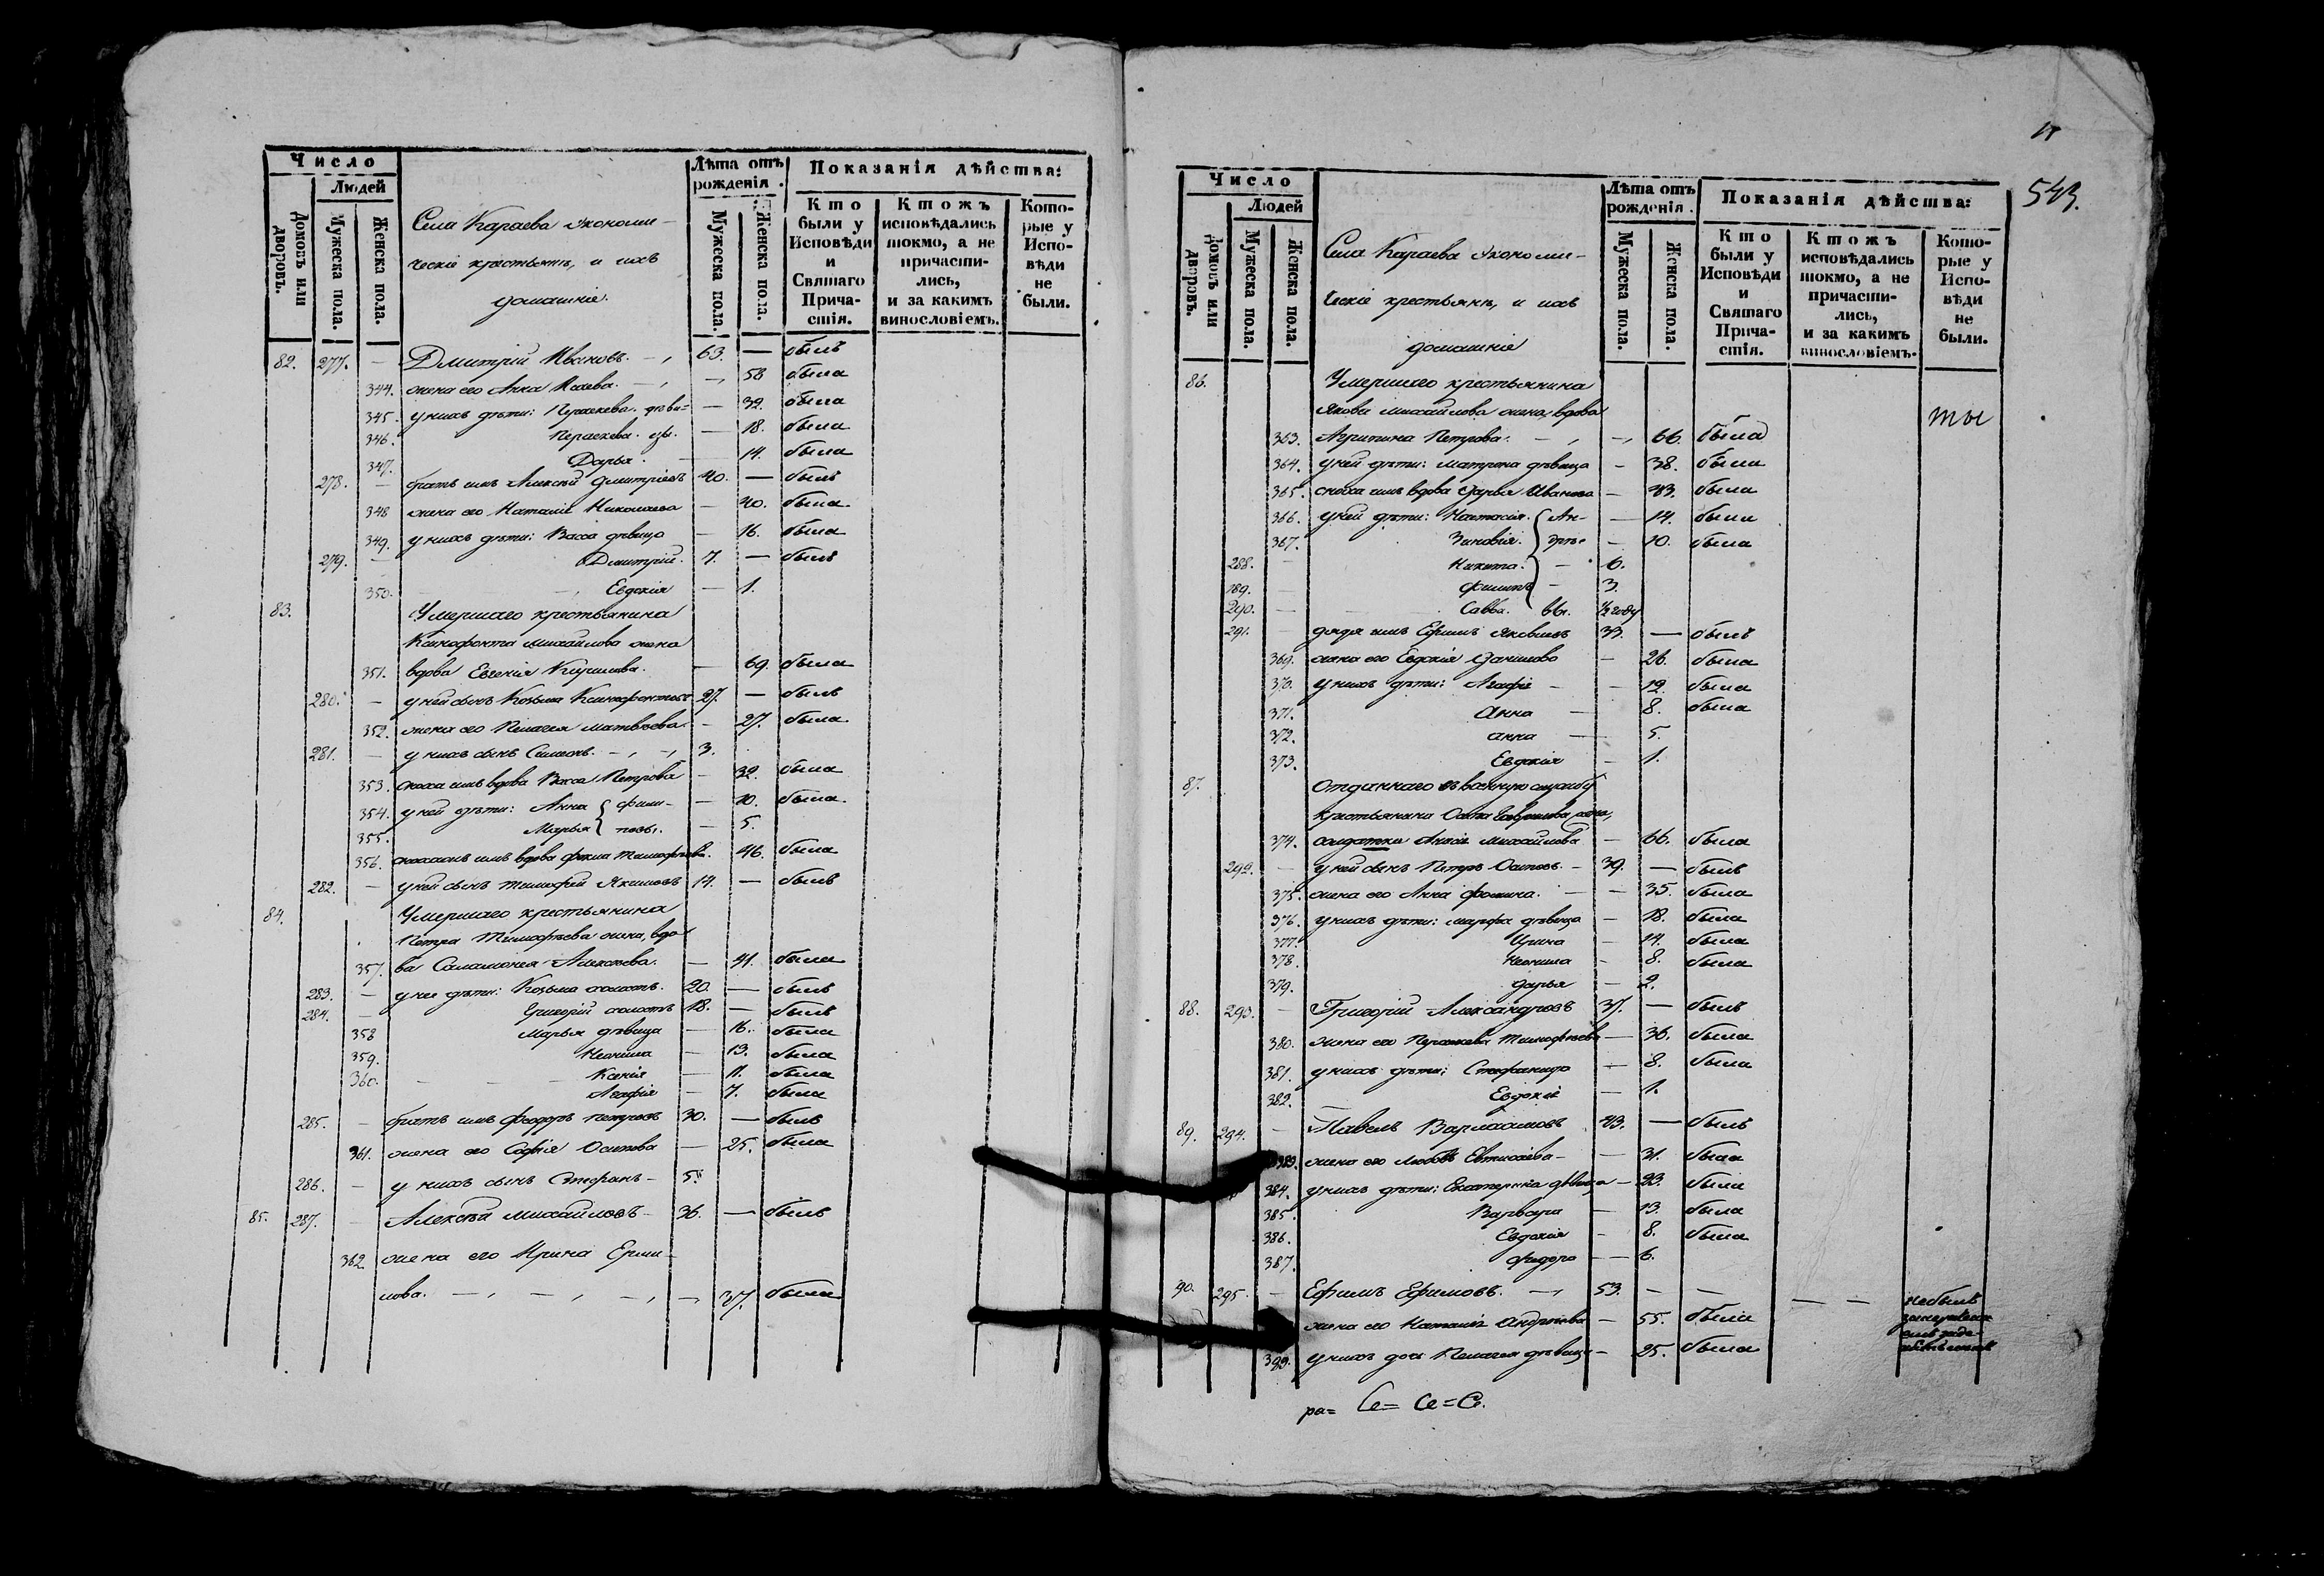 Число
Людей
Домовъ или дворовъ.
Мужеска пола.
Женска пола.
Села Караева Экономи-
ческiе крестьянѣ, и ихъ
домашнiе.
Лѣта отъ рожденiя.
Мужеска пола.
Женска пола.
Показанiя дѣйства:
Кто были у Исповѣди и Святаго Прича- стiя.
Ктожъ исповѣдались токмо, а не причасти- лись, и за какимъ винословiемъ.
Кото- рые у Испо- вѣди не были.
82. 277. — Дмитрiй Ивановъ. — 63. — былъ
344. жена его Анна — 58 была
345. у нихъ дѣти: — 32. была
346. — 18. была
347. Дарья. — 14. была
278. — братъ ихъ Алексѣй Димитрiевъ 40. — былъ
348 жена его Наталiя Николаева — 40. была
349. у нихъ дѣти: Васса дѣвица — 16. была
279. — Димитрiй. 7. — былъ
350. Евдокiя — 1.
83. Умершаго крестьянина
Ксенофонта Михайлова жена
351. вдова Евгенiя Кирилова. — 69. была
280. — у ней сынъ Козьма Ксенофонтовъ 27. — былъ
352. жена его Пелагея Матвѣева. — 27. была
281. — у нихъ сынъ Симеонъ. 3.
353. сноха ихъ вдова Васса Петрова — 32. была
354. у ней дѣти: Анна { Фили- — 10. была
355. Марья { повы. — 5.
356. ихъ вдова Тимофѣева. 46. была
282. — у ней сынъ Тимофей Якимовъ 14. — былъ
84. Умершаго крестьянина
Петра Тимофѣева жена, вдо-
357. ва Саламонiя Алексѣева. — 41. была
283. — у нея дѣти: Козьма холостъ. 20. — былъ
284. — Григорiй холостъ 18. — былъ
358 Марья дѣвица — 16. была
359. Неонила — 13. была
360. Ксенiя — 11. была
Агафiя — 7. была
285. — братъ ихъ Феодоръ Петровъ 30. — былъ
361. жена его Софiя Осипова — 25. была
286. — у нихъ сынъ Стефанъ — 5.
85. 287. — Алексѣй Михайловъ — 36. — былъ
362. жена его Ирина Ерми-
лова. — 37. была
543.
Число
Людей
Домовъ или дворовъ.
Мужеска пола.
Женска пола.
Села Караева Экономи-
ческiе крестьянѣ, и ихъ
домашнiе
Лѣта отъ рожденiя.
Мужеска пола.
Женска пола.
Показанiя дѣйства:
Кто были у Исповѣди и Святаго Прича- стiя.
Ктожъ исповѣдались токмо, а не причасти- лись, и за какимъ винословiемъ.
Кото- рые у Испо- вѣди не были.
86. Умершаго крестьянина
Якова Михайлова жена, вдова
ты
363. Агрипина Петрова. — 66. была
364. у ней дѣти: Матрона дѣвица — 38. была
365. сноха ихъ вдова Дарья Иванова — 43. была
366. у ней дѣти: Настасiя. { Ан- — 14. была
367. Зиновiя. { дрѣе- — 10. была
288. — Никита. — 6.
289. — Филипъ — 3.
290. — Савва. } вы. ½ году
291. дядя ихъ Ефимъ Яковлевъ 33. — былъ
369. жена его Евдокiя Данилова — 26. была
370. у нихъ дѣти: Агафiя — 12. была
371. Анна — 8. была
372. Анна — 5.
373. Евдокiя — 1.
87. Отданнаго въ военную службу
крестьянина Осипа Гаврилова жена,
374. солдатка Михайлова — 66. была
292. — у ней сынъ Петръ Осиповъ — 39. — былъ
375. жена его Анна Фомина. — 35. была
376. у нихъ дѣти: Марфа дѣвица — 18. была
377. Ирина — 14. была
378. Неонила — 8. была
379. Дарья — 2.
88. 293. — Григорiй Александровъ 37. — былъ
380. жена его Тимофѣева — 36. была
381. у нихъ дѣти: Стефанида — 8. была
382. Евдокiя — 1.
89. 294. — Павелъ Варлаамовъ 43. — былъ
383. жена его Любовь Евтихiева — 31. была
384. у нихъ дѣти: Екатерина дѣвица — 23. была
385. Варвара — 13. была
386. Евдокiя — 8. была
387. Федора — 6.
90. 295. — Ефимъ Ефимовъ. — 53. — — — — не былъ
жена его Наталiя Андрѣева — 55. была
399. у нихъ дочь Пелагея дѣвица — 25. была
ра= Се= Се= С.